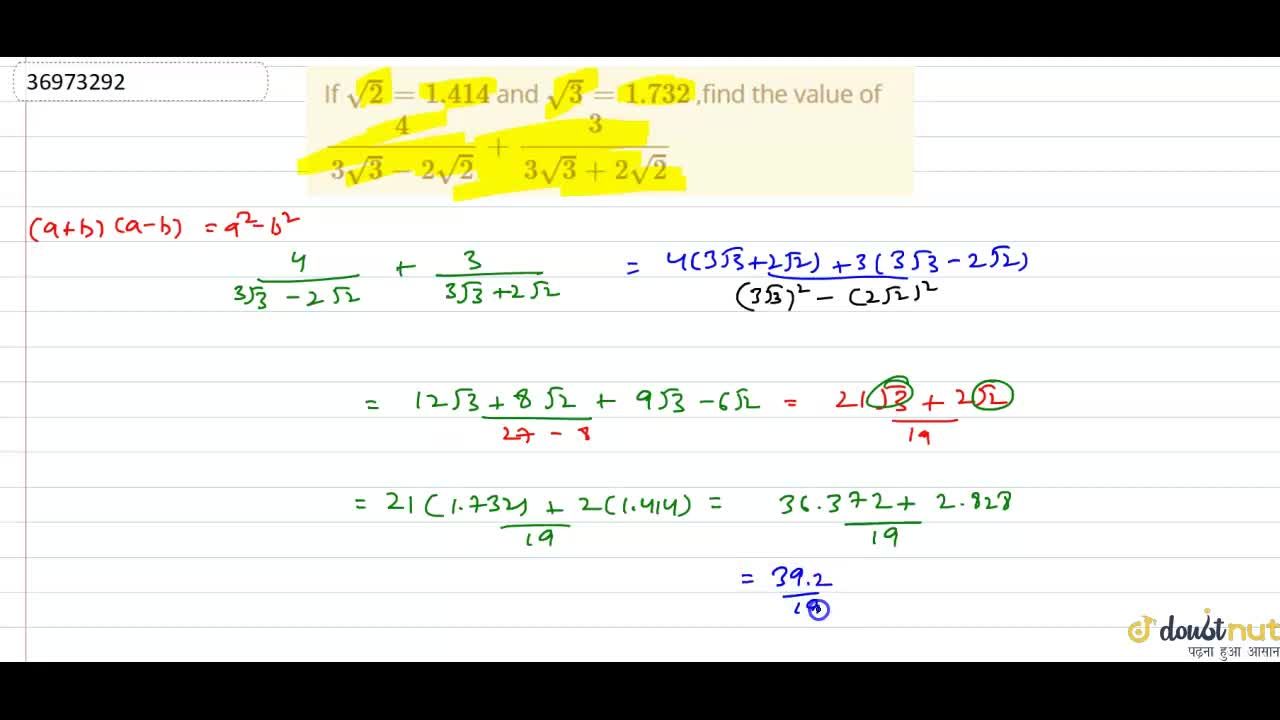 36973292
If √2 = 1.414 and √3 = 1.732 ,find the value of
4/(3√3 − 2√2) + 3/(3√3 + 2√2)
(a+b) (a-b) = a²-b²
4/(3√3 − 2√2) + 3/(3√3 + 2√2) = (4(3√3 + 2√2) + 3(3√3 − 2√2))/((3√3)² − (2√2)²)
= (12√3 + 8√2 + 9√3 − 6√2)/(27 − 8) = (21√3 + 2√2)/19
= (21(1.732) + 2(1.414))/19 = (36.372 + 2.828)/19
= 39.2/19
doubtnut
पढ़ना हुआ आसान